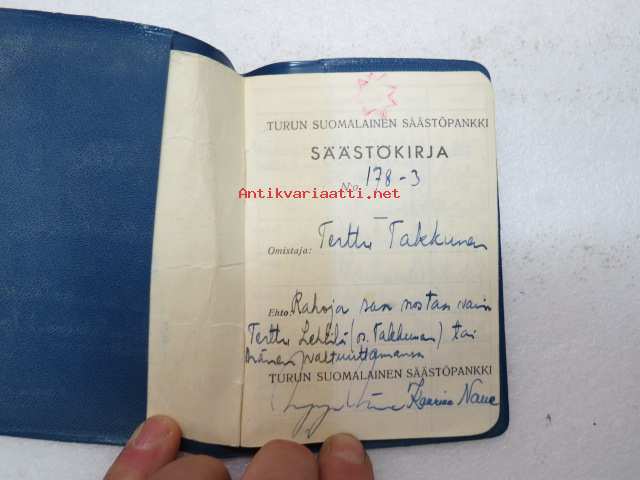 TURUN SUOMALAINEN SÄÄSTÖPANKKI
SÄÄSTÖKIRJA
N:o 178-3
Antikvariaatti.net
Omistaja: Terttu Takkunen
Ehto: Rahoja saa nostaa vain
Terttu Lehtilä (o.s. Takkunen) tai
hänen valtuuttamansa
TURUN SUOMALAINEN SÄÄSTÖPANKKI
Kaarina